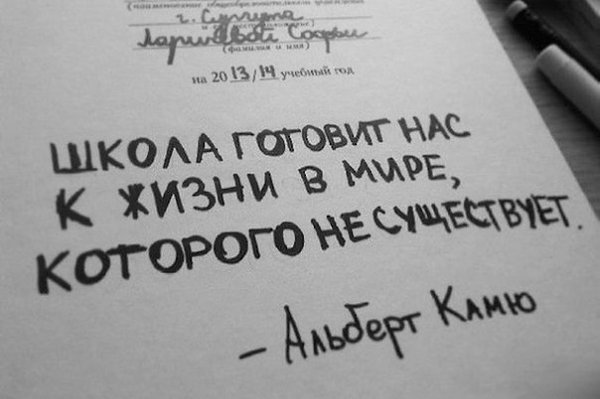 (наименование общеобразовательного учреждения)
г. Сургута
Ларичевой Софьи
(фамилия и имя)
на 2013/14 учебный год
ШКОЛА ГОТОВИТ НАС
К ЖИЗНИ В МИРЕ,
КОТОРОГО НЕ СУЩЕСТВУЕТ.
– Альберт Камю